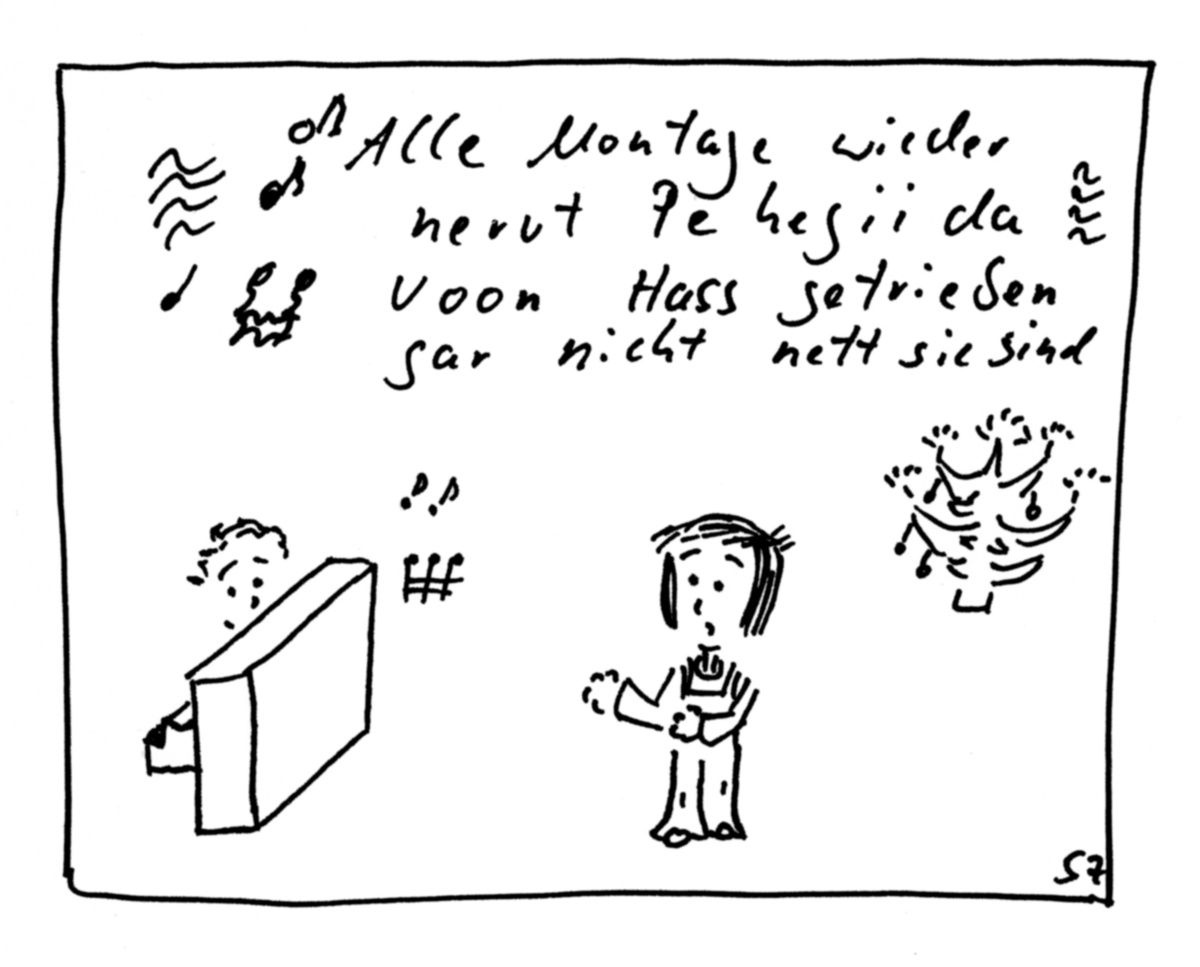 Alle Montage wieder
nervt Pe hegii da
voon Hass getrieben
gar nicht nett sie sind